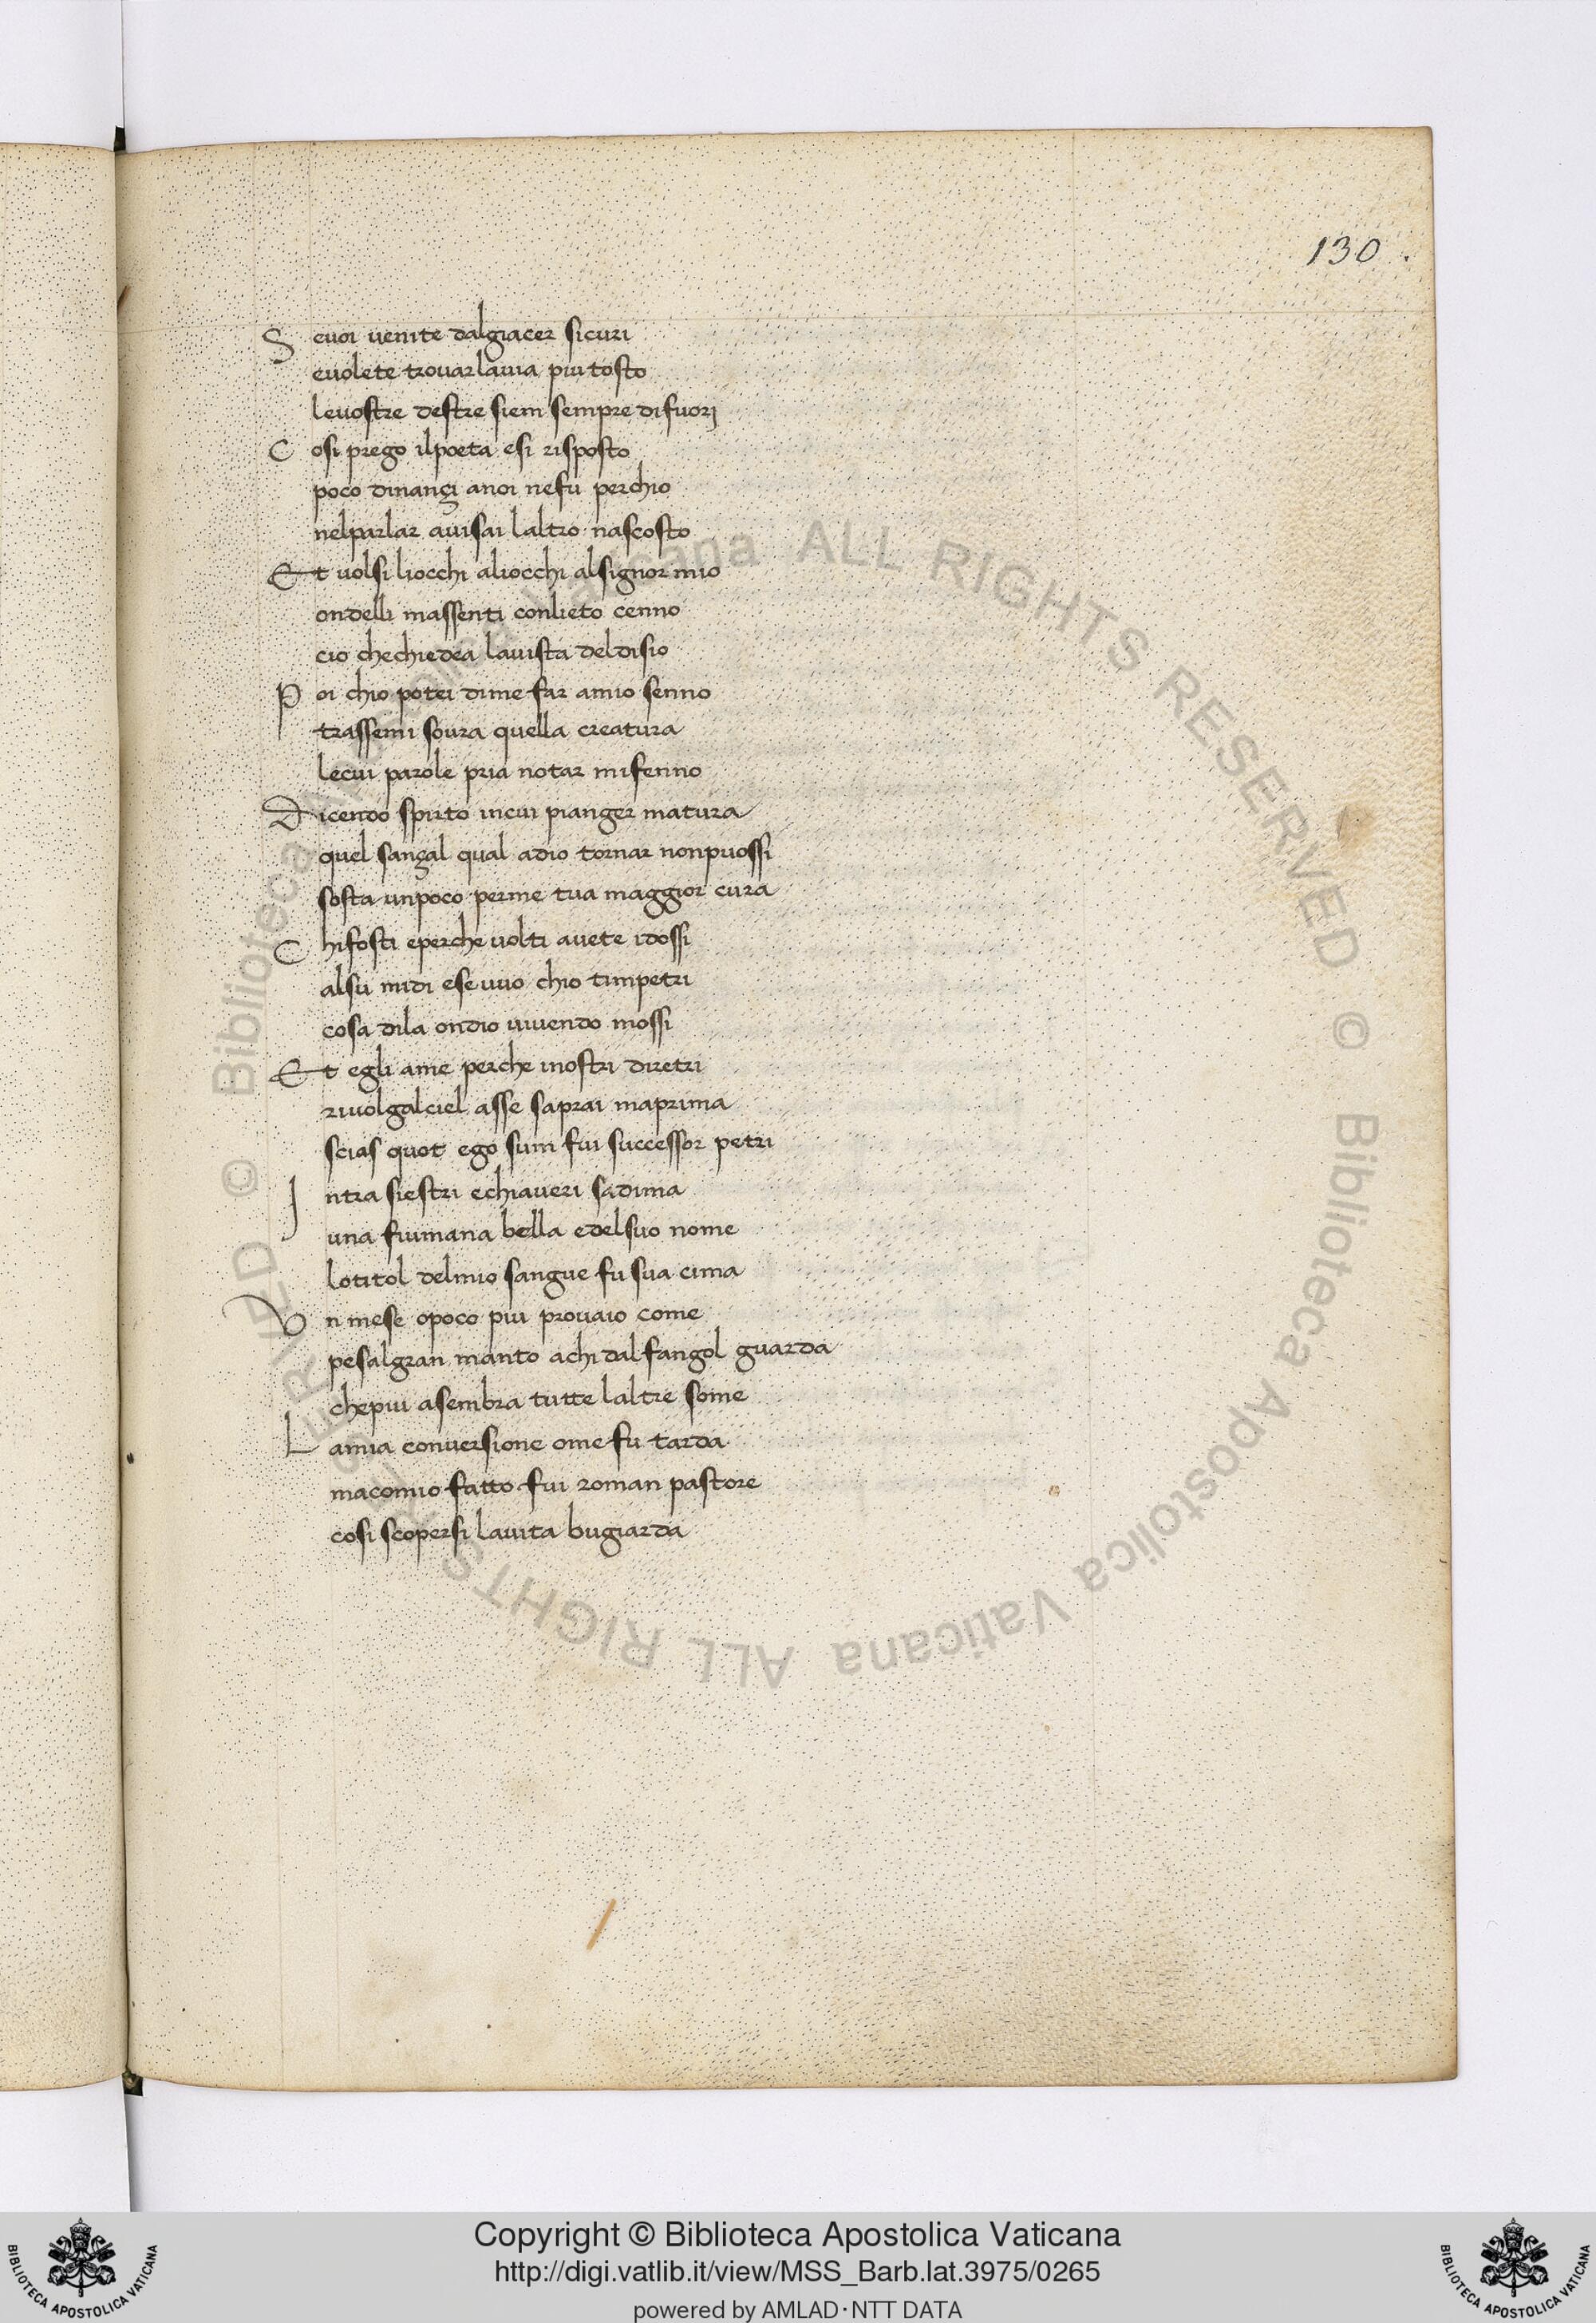 130.
S evoi venite dalgiacer sicuri
evolete trovarlavia piu tosto
levostre destre siem sempre difuorj
C osi prego ilpoeta esi risposto
poco dinançi anoi nefu perchio
nelparlar avisai laltro nascosto
Et volsi liocchi aliocchi alsignor mio
ondelli massenti conlieto cenno
cio chechiedea lavista deldisio
P oi chio potei dime far amio senno
trassemi sovra quella creatura
lecui parole pria notar mifenno
Dicendo spirto incui pianger matura
quel sançal qual adio tornar nonpuossi
sosta unpoco perme tua maggior cura
C hifosti eperche volti avete idossi
alsu midi esevuo chio timpetri
cosa dila ondio vivendo mossi
Et egli ame perche inostri diretri
rivolgalciel asse saprai maprima
scias quot ego sum fui successor petri
I ntra siestri echiaveri sadima
una fiumana bella edelsuo nome
lotitol delmio sangue fu sua cima
U n mese opoco piu provaio come
pesalgran manto achi dal fangol guarda
chepiu asembra tutte laltre some
L amia conversione ome fu tarda
macomio fatto fui roman pastore
cosi scopersi lavita bugiarda
© Biblioteca Apostolica Vaticana ALL RIGHTS RESERVED © Biblioteca Apostolica Vaticana ALL RIGHTS RESERVED
Copyright © Biblioteca Apostolica Vaticana
http://digi.vatlib.it/view/MSS_Barb.lat.3975/0265
powered by AMLAD·NTT DATA
BIBLIOTECA APOSTOLICA VATICANA
BIBLIOTECA APOSTOLICA VATICANA